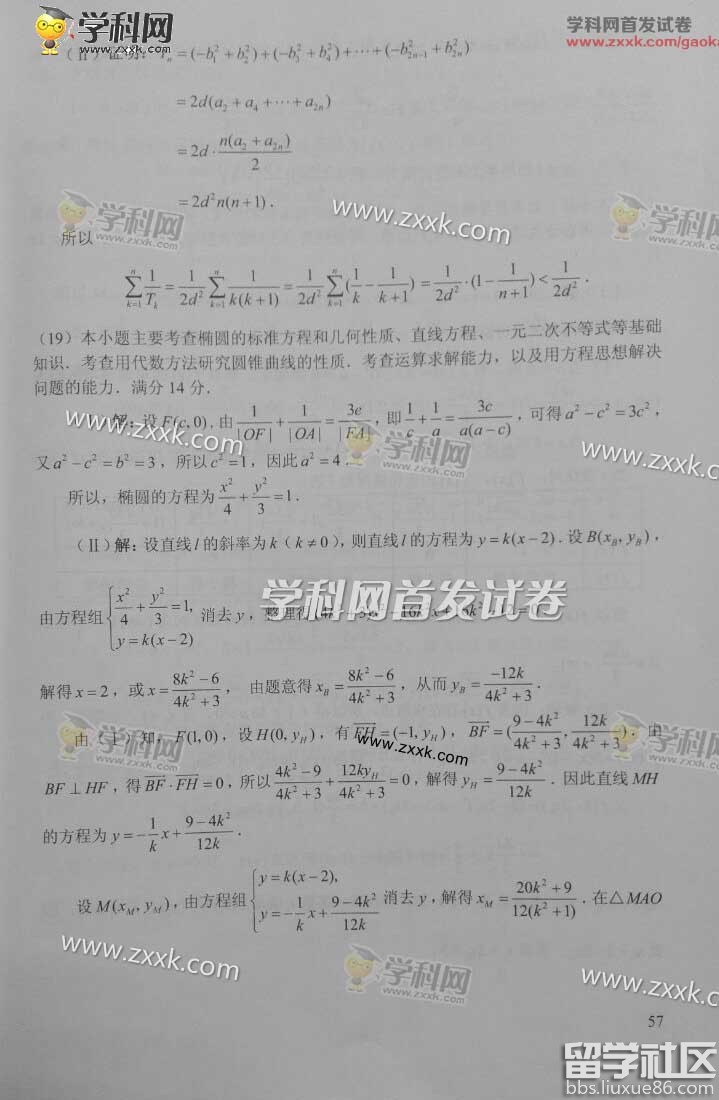 学科网
zxxk.com
学科网首发试卷
www.zxxk.com/gaoka
(Ⅱ) 证明: T_n = (-b_1^2 + b_2^2) + (-b_3^2 + b_4^2) + ⋯ + (-b_{2n-1}^2 + b_{2n}^2)
= 2d(a_2 + a_4 + ⋯ + a_{2n})
= 2d · n(a_2 + a_{2n})/2
= 2d^2 n(n+1).
学科网
zxxk.com
www.zxxk.com
学科网
zxxk.com
所以
∑_{k=1}^{n} 1/T_k = 1/(2d^2) ∑_{k=1}^{n} 1/(k(k+1)) = 1/(2d^2) ∑_{k=1}^{n} (1/k - 1/(k+1)) = 1/(2d^2) · (1 - 1/(n+1)) < 1/(2d^2).
(19) 本小题主要考查椭圆的标准方程和几何性质、直线方程、一元二次不等式等基础
知识. 考查用代数方法研究圆锥曲线的性质. 考查运算求解能力, 以及用方程思想解决
问题的能力. 满分 14 分.
解: 设 F(c,0), 由 1/|OF| + 1/|OA| = 3e/|FA|, 即 1/c + 1/a = 3c/(a(a-c)), 可得 a^2 - c^2 = 3c^2,
www.zxxk.com
学科网
zxxk.com
www.zxxk.com
又 a^2 - c^2 = b^2 = 3, 所以 c^2 = 1, 因此 a^2 = 4.
所以, 椭圆的方程为 x^2/4 + y^2/3 = 1.
(Ⅱ) 解: 设直线 l 的斜率为 k (k ≠ 0), 则直线 l 的方程为 y = k(x-2). 设 B(x_B, y_B),
学科网首发试卷
由方程组 { x^2/4 + y^2/3 = 1, y = k(x-2) 消去 y, 整理得
解得 x = 2, 或 x = (8k^2-6)/(4k^2+3), 由题意得 x_B = (8k^2-6)/(4k^2+3), 从而 y_B = -12k/(4k^2+3).
由 (Ⅰ) 知, F(1,0), 设 H(0, y_H), 有 FH = (-1, y_H), BF = ((9-4k^2)/(4k^2+3), 12k/(4k^2+3)). 由
学科网
zxxk.com
www.zxxk.com
学科网
zxxk.com
BF ⊥ HF, 得 BF · FH = 0, 所以 (4k^2-9)/(4k^2+3) + 12ky_H/(4k^2+3) = 0, 解得 y_H = (9-4k^2)/(12k). 因此直线 MH
的方程为 y = -1/k x + (9-4k^2)/(12k).
设 M(x_M, y_M), 由方程组 { y = k(x-2), y = -1/k x + (9-4k^2)/(12k) 消去 y, 解得 x_M = (20k^2+9)/(12(k^2+1)). 在 △MAO
www.zxxk.com
学科网
zxxk.com
www.zxxk.com
57
留学社区
bbs.liuxue86.com